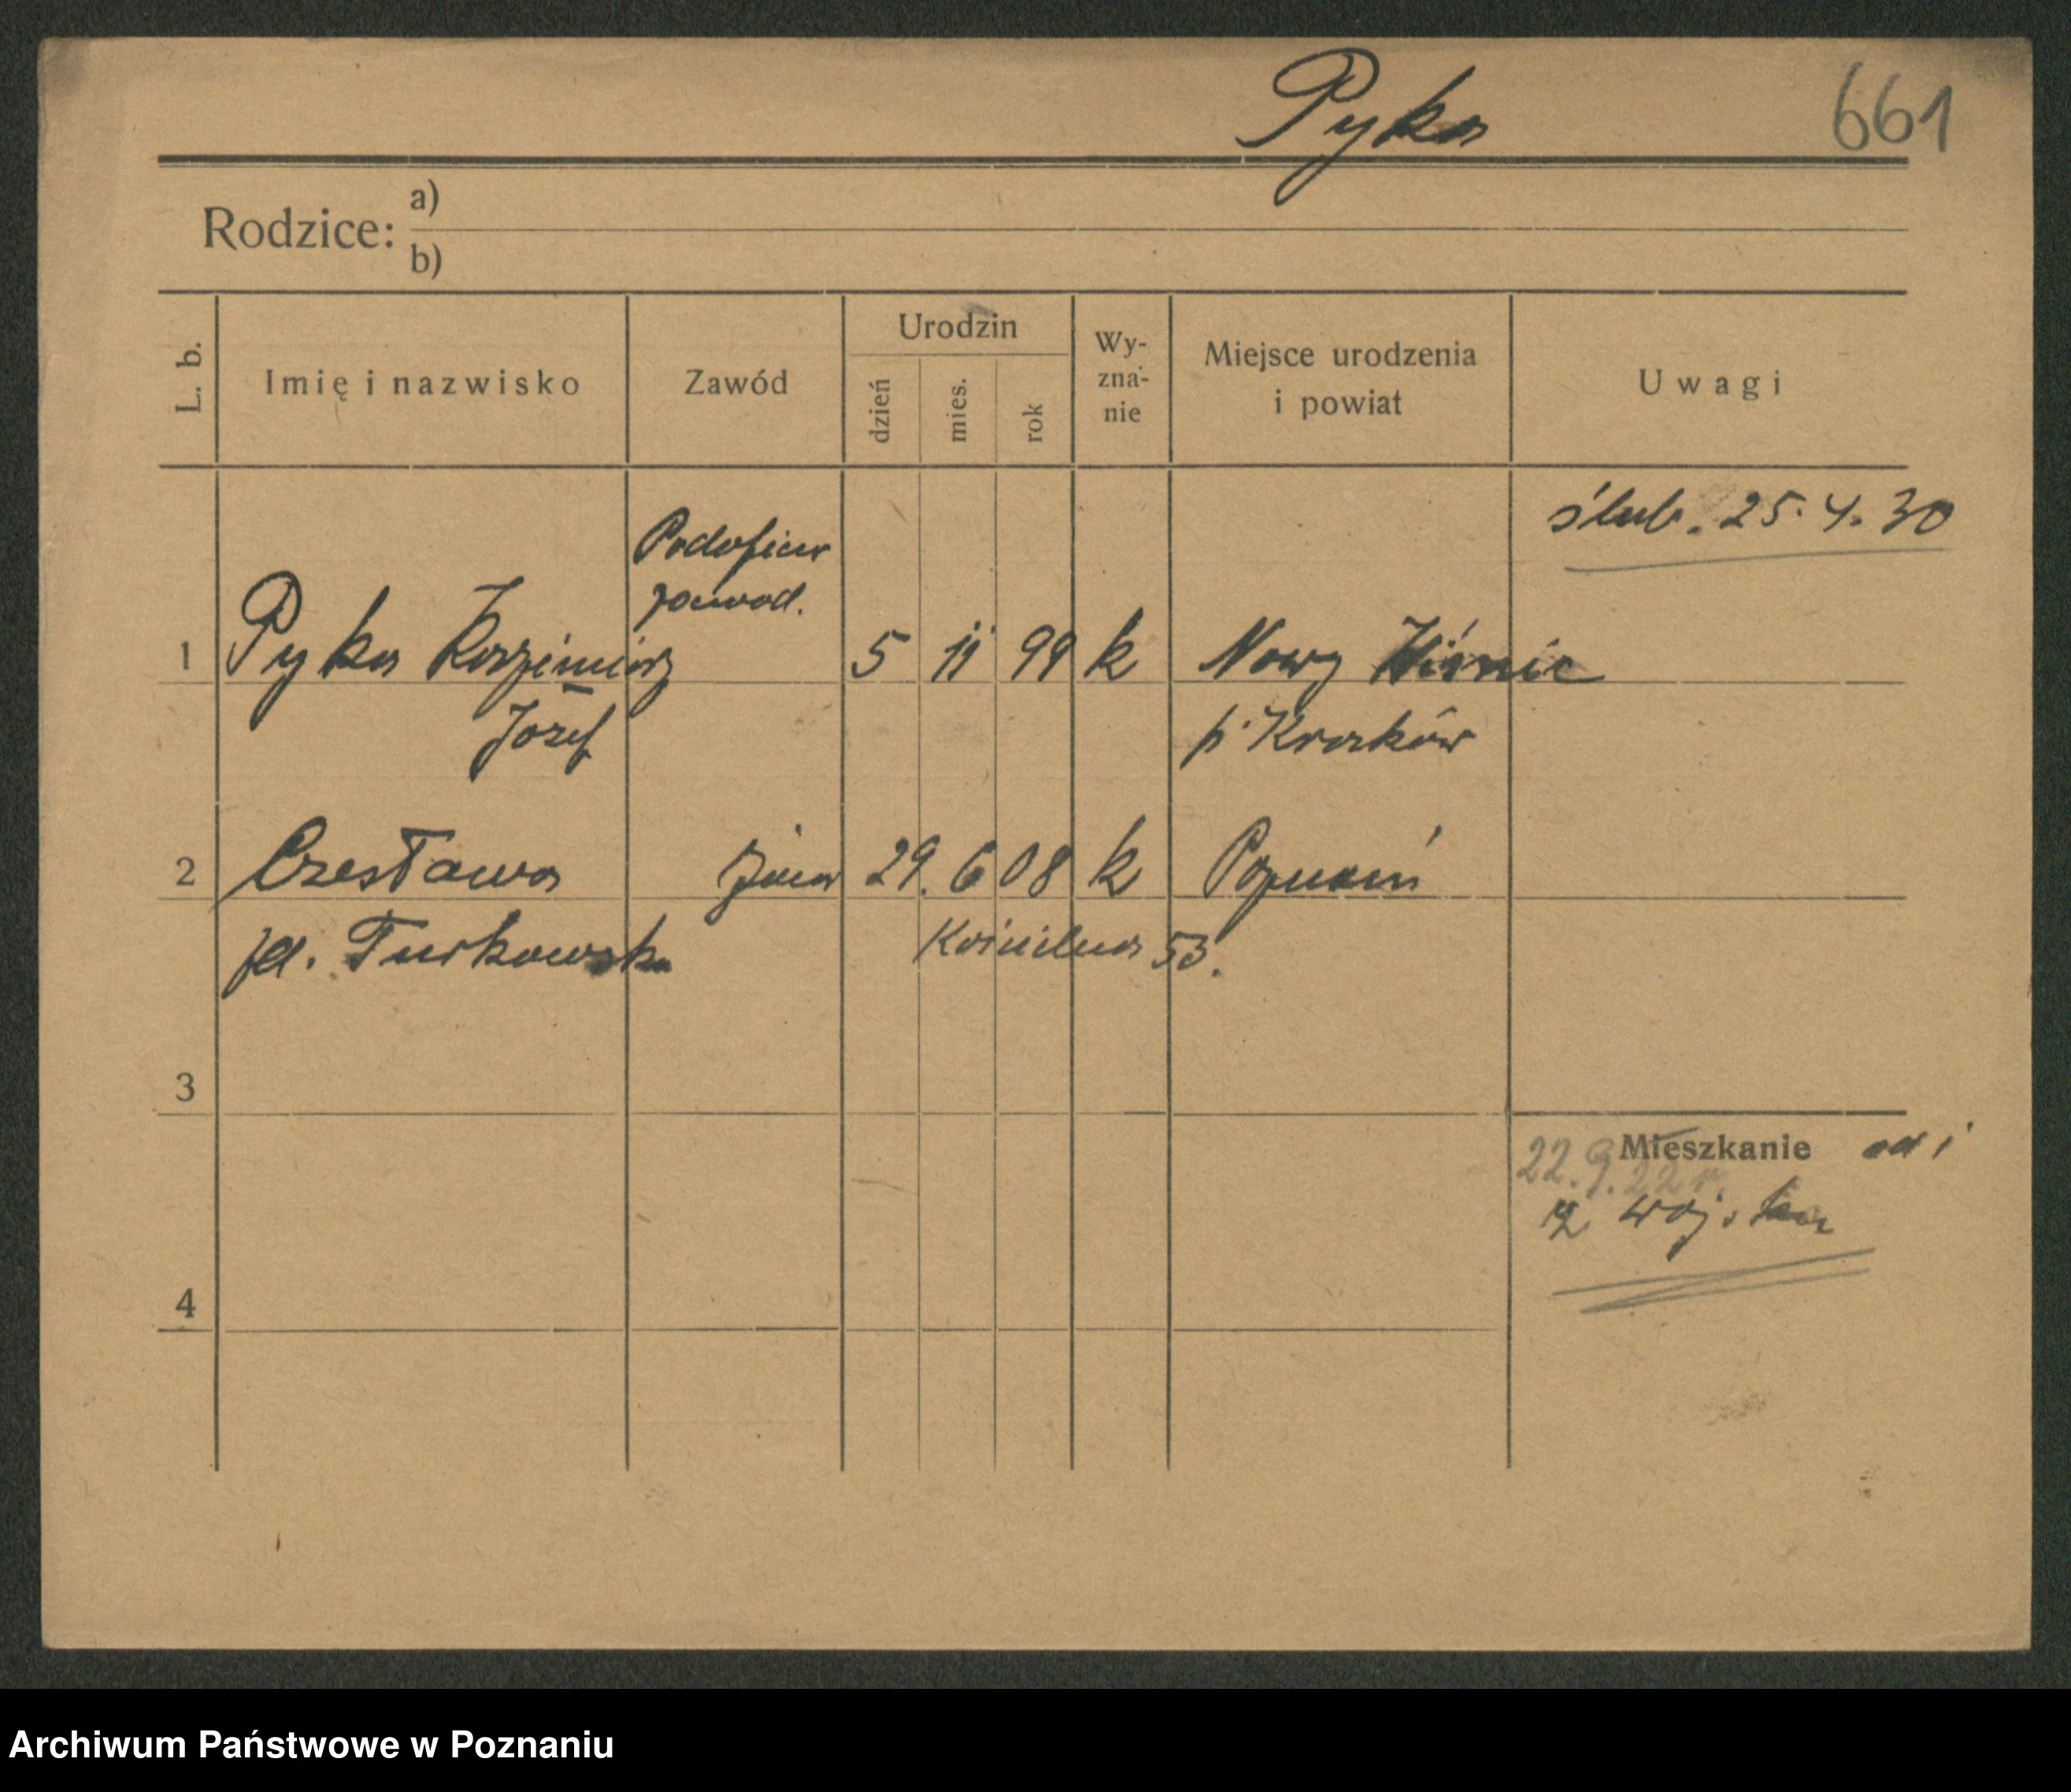 Pyka 661
Rodzice: a)
b)
L. b. Imię i nazwisko Zawód Urodzin dzień mies. rok Wy-zna-nie Miejsce urodzenia i powiat Uwagi
ślub. 25.4.30
Podoficer
zawod.
1 Pyka Kazimierz 5 11 99 k Nowy Wiśnic
Józef p. Kraków
2 Czesława żona 29. 6 08 k Poznań
zd. Turkowska 53.
3
Mieszkanie od
22.9.22 r.
z woj.
4
Archiwum Państwowe w Poznaniu